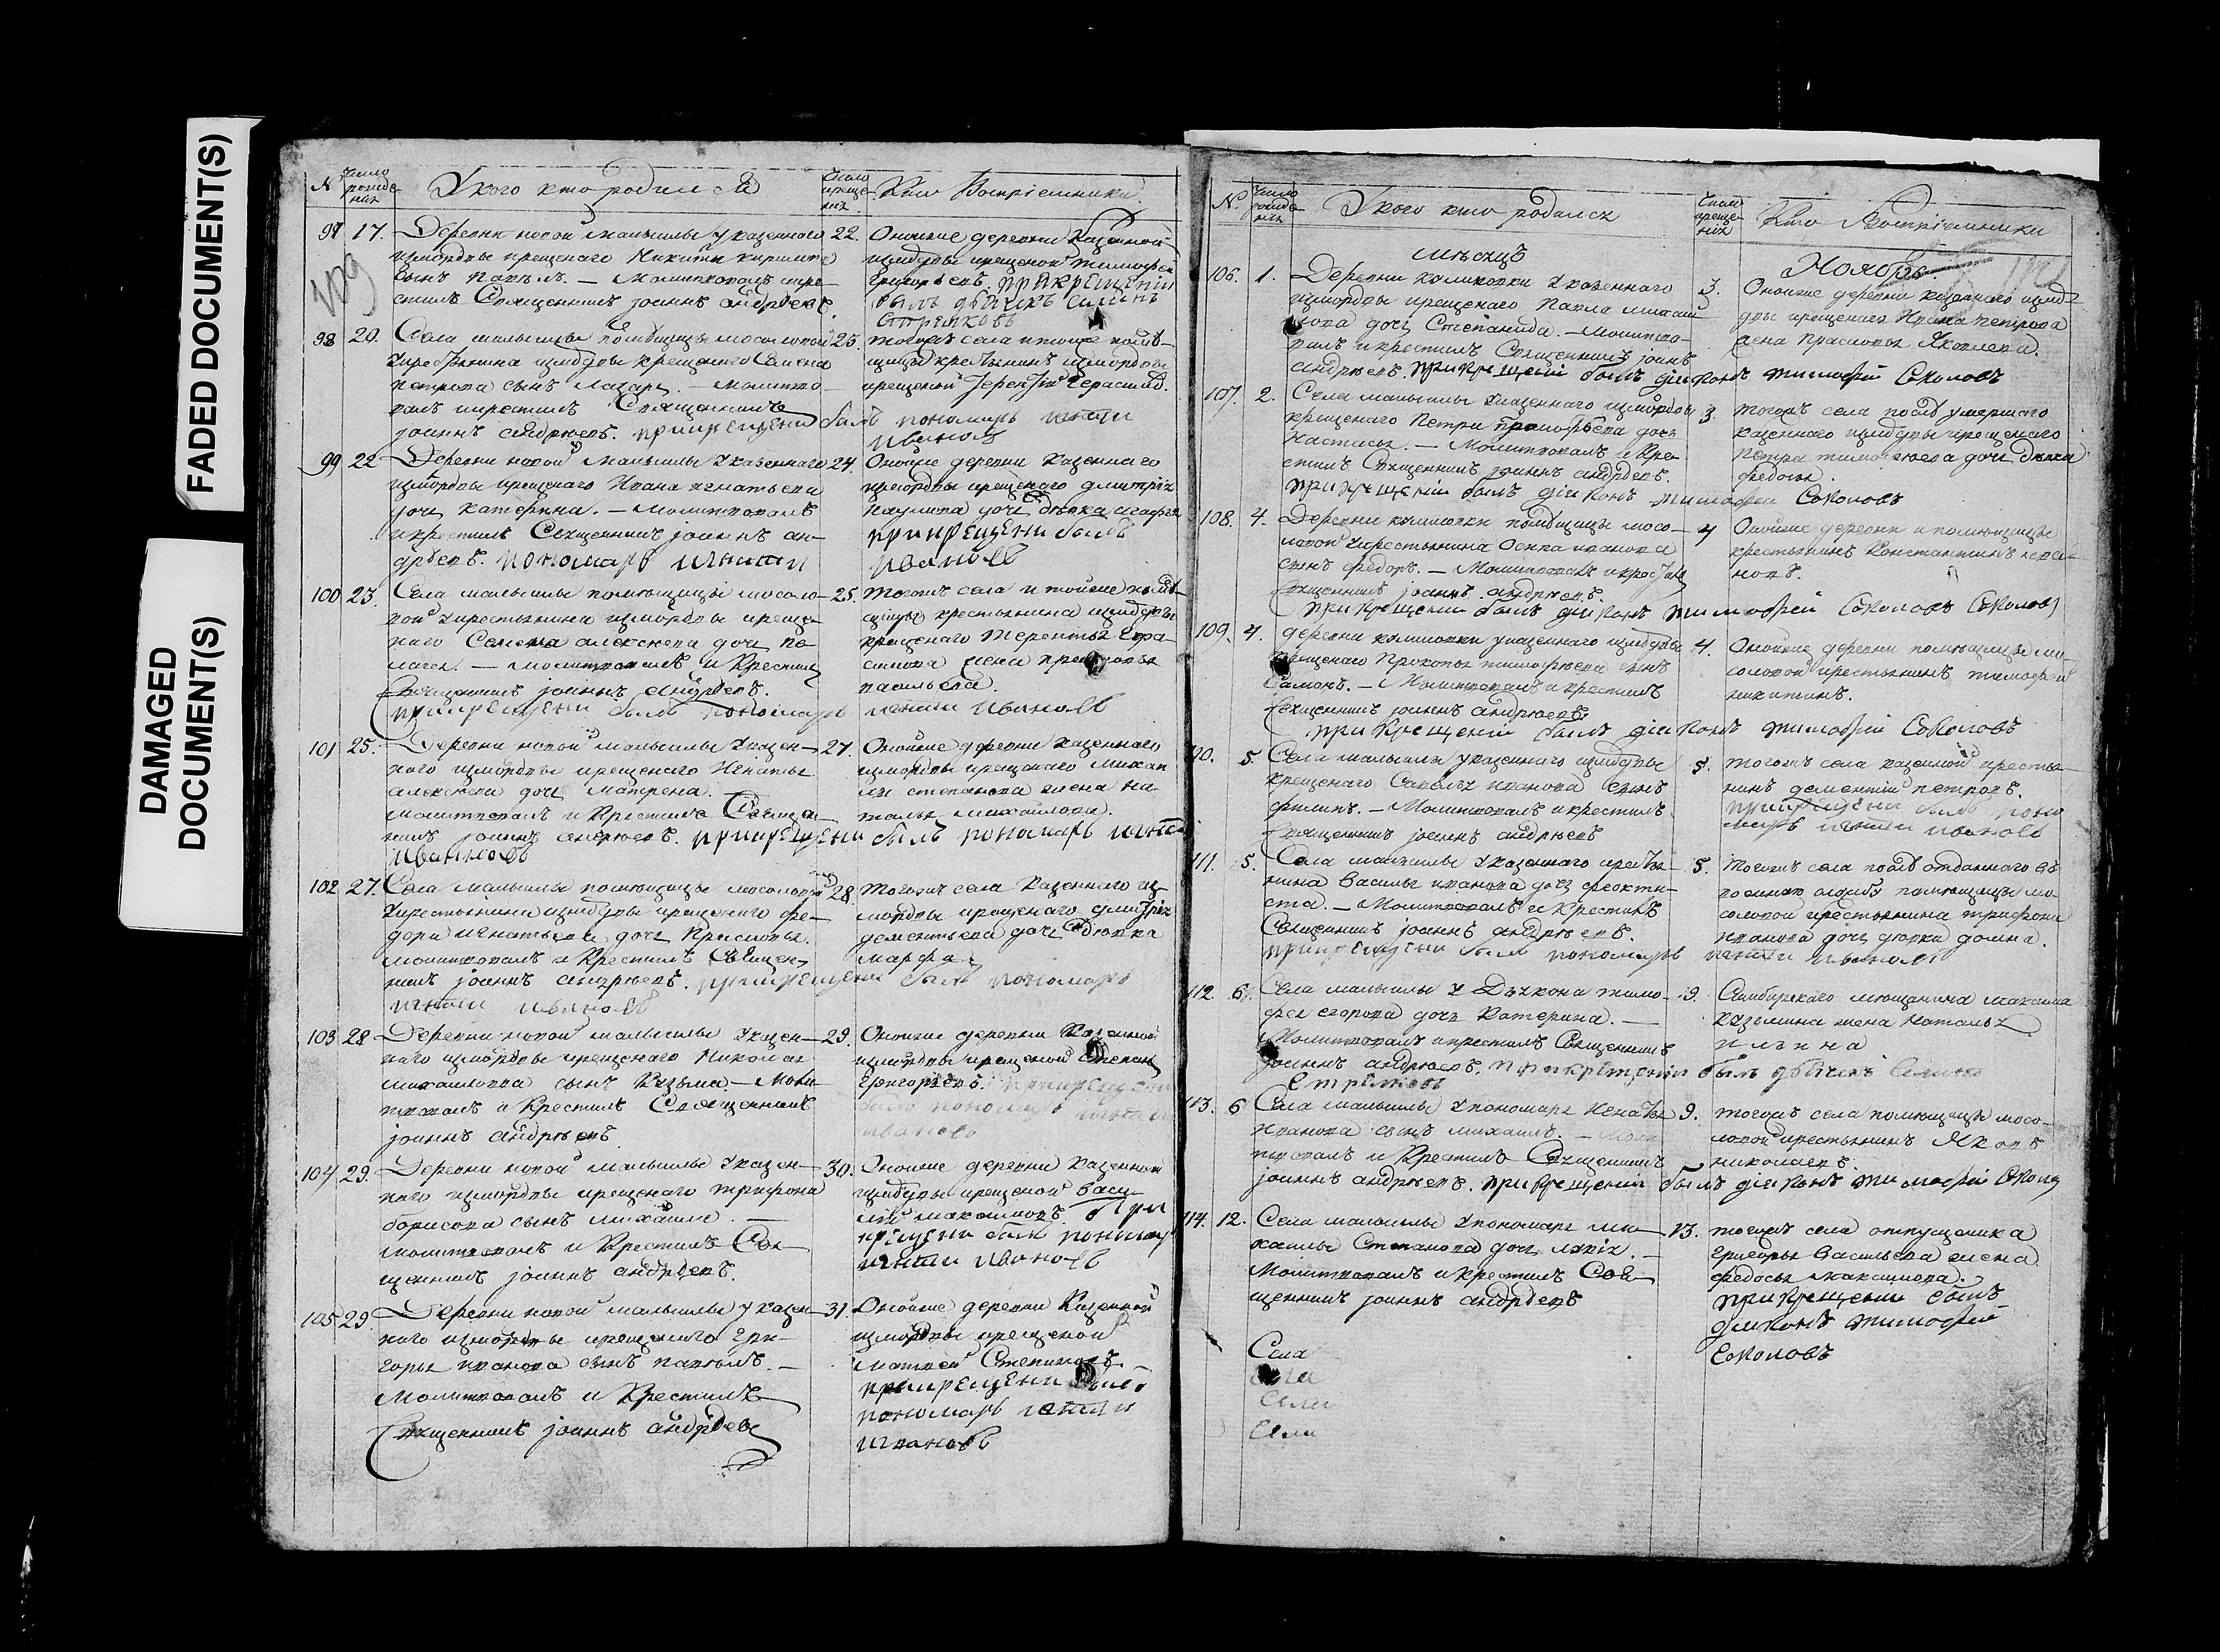 FADED DOCUMENT(S)
DAMAGED
DOCUMENT(S)
N
Число рожде-ния
У кого кто родился
Число креще-ния
Кто Восприемники
97 17. Деревни новой малыклы у казенного
мордвы крещенаго Никиты
сынъ Павелъ. — Молитвовалъ и кре-
стилъ Священникъ Iоаннъ андрѣевъ.
22. Оной же деревни казенной
мордвы крещеной тимофей
Григорьевъ. При крещении
былъ дьячекъ
Стрелковъ
98 20. Села малыклы помѣщицы мосоловой
у крестьянина мордвы крещенаго Семена
петрова сынъ Лазарь. — молитво-
валъ и крестилъ Священникъ
Iоаннъ андрѣевъ. при крещени былъ пономарь игнати
25. тогожъ села и тоже помѣ-
щицы крестьянинъ мордвы
крещеной Терентiй Герасимовъ.
ивановъ
99 22 Деревни новой малыклы у казеннаго
мордвы крещенаго Ивана игнатьева
дочь катерина. — Молитвовалъ
и крестилъ Священникъ Iоаннъ ан-
дрѣевъ. пономарь игнати
24. Оной же деревни казеннаго
мордвы крещенаго дмитрiя
наумова дочь дѣвка агафья
при крещени былъ
ивановъ
100 23. Села малыклы помѣщицы мосоло-
вой у крестьянина мордвы креще-
наго Семена алексѣева дочь Пе-
лагея. — молитвовалъ и Крестилъ
Священникъ Iоаннъ андрѣевъ.
при крещени былъ пономарь
25. тогожъ села и тойже помѣ-
щицы крестьянина мордвы
крещенаго терентья гера-
симова жена
васильева.
игнати ивановъ
101 25. Деревни новой малыклы у казен-
ного мордвы крещенаго Игнатья
алексѣева дочь матрена. —
молитвовалъ и Крестилъ Священ-
никъ Iоаннъ андрѣевъ. при крещени былъ пономарь игнати
ивановъ
27. Оной же деревни казеннаго
мордвы крещенаго михаи
ла степанова жена На-
талья михайлова.
102 27. Села малыклы помѣщицы мосоловой
у крестьянина мордвы крещенаго фе-
дора игнатьева дочь Прасковья.
молитвовалъ и Крестилъ Священ-
никъ Iоаннъ андрѣевъ. при крещени былъ пономарь
игнати ивановъ
28. тогожъ села казеннаго
мордвы крещенаго дмитрiя
дементьева дочь дѣвка
марфа
103 28 Деревни новой малыклы у казен-
наго мордвы крещенаго Николая
михайлова сынъ Козьма — Моли-
твовалъ и Крестилъ Священникъ
Iоаннъ андрѣевъ
29. Оной же деревни казенной
мордвы крещеной Степанъ
Григорьевъ. при крещени
былъ пономарь игнати
ивановъ
104 29. Деревни новой малыклы у казен-
наго мордвы крещенаго трифона
борисова сынъ михайла. —
молитвовалъ и Крестилъ Свя-
щенникъ Iоаннъ андрѣевъ.
30. Оной же деревни казенной
мордвы крещеной васи-
лiй максимовъ. при
крещени былъ пономарь
игнати ивановъ
105 29 Деревни новой малыклы у казен-
наго мордвы крещенаго Гри-
горья иванова сынъ павелъ. —
Молитвовалъ и Крестилъ
Священникъ Iоаннъ андрѣевъ
31. Оной же деревни казенной
мордвы крещеной
матвей Степановъ.
при крещени былъ
пономарь игнати
ивановъ
N.
Число рожде-ния
У кого кто родился
Число креще-ния
Кто Восприемники
мѣсяцъ
Ноябрь
106. 1. Деревни
мордвы крещенаго Павла михай
лова дочь Степанида. — Молитво-
валъ и крестилъ Священникъ Iоаннъ
андрѣевъ. при крещенiи былъ дiяконъ тимофей Соколовъ
3. Оной же деревни казеннаго морд-
вы крещенаго Ивана петрова
жена прасковья Яковлева.
107. 2. Села малыклы у казеннаго мордвы
крещенаго Петра дочь
Настасья. — Молитвовалъ и Кре-
стилъ Священникъ Iоаннъ андрѣевъ.
при крещенiи былъ дiяконъ тимофей Соколовъ
3. тогожъ села послѣ умершаго
казеннаго мордвы крещенаго
Петра тимофѣева дочь дѣвка
федосья.
108. 4. Деревни помѣщицы мосо-
ловой у крестьянина Осипа иванова
сынъ федоръ. — Молитвовалъ и крестилъ
Священникъ Iоаннъ андрѣевъ.
при крещенiи былъ дiяконъ тимофей Соколовъ Соколовъ
4 Оной же деревни и помѣщицы
крестьянинъ Константинъ
новъ.
109. 4. деревни у казеннаго мордвы
крещенаго Прокопья тимофѣева сынъ
Самонъ. — Молитвовалъ и крестилъ
Священникъ Iоаннъ андрѣевъ.
при крещенiи былъ дiяконъ тимофей Соколовъ
4. Оной же деревни помѣщицы мо-
соловой крестьянинъ тимофей
никитинъ.
110. 5 Села малыклы у казеннаго мордвы
крещенаго Савелья иванова сынъ
филипъ. — Молитвовалъ и крестилъ
Священникъ Iоаннъ андрѣевъ
5. тогожъ села казенной крестья-
нинъ дементiй петровъ.
при крещени былъ поно
марь игнати ивановъ
111. 5. Села малыклы у казеннаго кресть-
янина Василья иванова дочь феокти-
ста. — Молитвовалъ и Крестилъ
Священникъ Iоаннъ андрѣевъ.
при крещени былъ пономарь игнати ивановъ
5. тогожъ села послѣ отданнаго въ
военную службу помѣщицы мо-
соловой крестьянина трифона
иванова дочь дѣвка домна.
112 6. Села малыклы у Дьякона тимо-
фея егорова дочь Катерина. —
Молитвовалъ и крестилъ Священникъ
Iоаннъ андрѣевъ. при крещении былъ дьячекъ
9. Симбирскаго мѣщанина максима
казьмина жена Наталья
ильина
113. 6 Села малыклы у пономаря Игнатья
Иванова сынъ михаилъ. — Моли
твовалъ и Крестилъ Священникъ
Iоаннъ андрѣевъ. при крещенiи былъ дiяконъ тимофей Соколов
9. тогожъ села помѣщицы мосо-
ловой крестьянинъ Яковъ
николаевъ.
114. 12. Села малыклы у пономаря ми-
хайлы Степанова дочь марiя. —
Молитвовалъ и крестилъ Свя-
щенникъ Iоаннъ андрѣевъ
13. тогожъ села отпущеника
григорья Васильева жена
федосья максимова.
при крещенiи былъ
дияконъ тимофей
Соколовъ
Села
Села
Села
Села